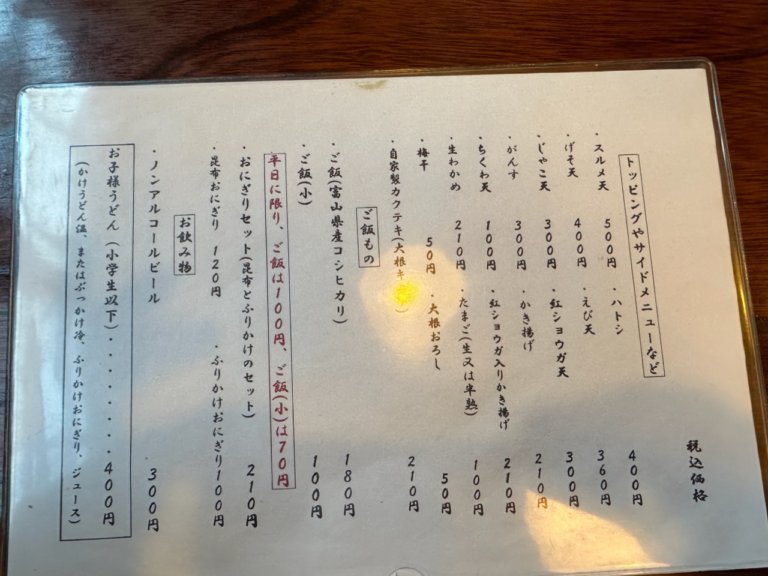 税込価格
トッピングやサイドメニューなど
・スルメ天 500円 ・ハトシ 400円
・げそ天 400円 ・えび天 360円
・じゃこ天 300円 ・紅ショウガ天 300円
・がんす 300円 ・かき揚げ 210円
・ちくわ天 100円 ・紅ショウガ入りかき揚げ 210円
・生わかめ 210円 ・たまご(生又は半熟) 100円
・梅干 50円 ・大根おろし 50円
・自家製カクテキ 210円
ご飯もの
・ご飯(富山県産コシヒカリ) 180円
・ご飯(小) 100円
平日に限り、ご飯は100円、ご飯(小)は70円
・おにぎりセット(昆布とふりかけのセット) 210円
・昆布おにぎり 120円 ・ふりかけおにぎり100円
お飲み物
・ノンアルコールビール 300円
お子様うどん(小学生以下)・・・・・・・・400円
(かけうどん温、またはぶっかけ冷、ふりかけおにぎり、ジュース)